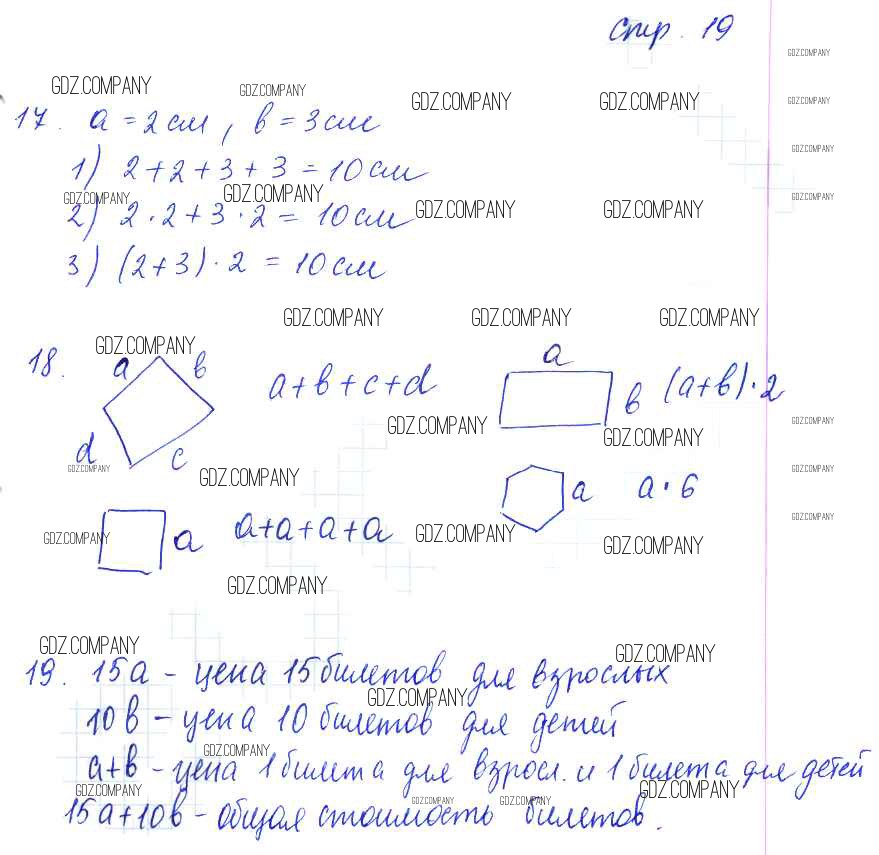 стр. 19
17. a = 2 см, в = 3 см
1) 2 + 2 + 3 + 3 = 10 см
2) 2 · 2 + 3 · 2 = 10 см
3) (2 + 3) · 2 = 10 см
18. a в c d a + в + c + d
a в (a + в) · 2
a a + a + a + a
a a · 6
19. 15a - цена 15 билетов для взрослых
10в - цена 10 билетов для детей
a + в - цена 1 билета для взросл. и 1 билета для детей
15a + 10в - общая стоимость билетов.
GDZ.COMPANY